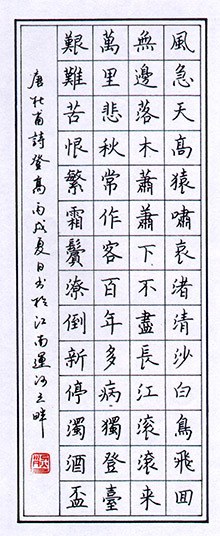 風急天高猿嘯哀渚清沙白鳥飛回
無邊落木蕭蕭下不盡長江滚滚来
萬里悲秋常作客百年多病獨登臺
艱難苦恨繁霜鬢潦倒新停濁酒盃
唐杜甫詩登高丙戌夏日书於江南運河之畔